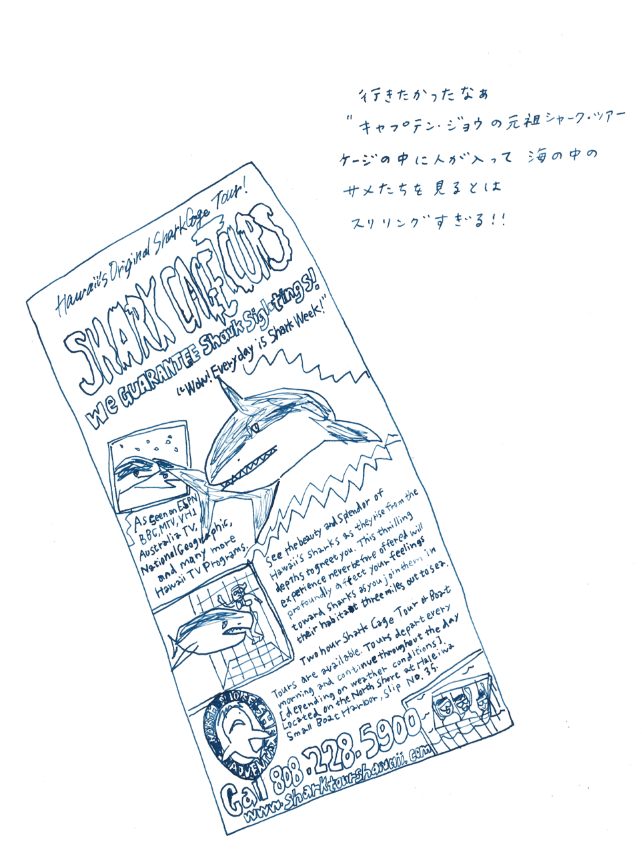 行きたかったなぁ
"キャプテン・ジョウの元祖シャーク・ツアー
ケージの中に人が入って 海の中の
サメたちを見るとは
スリリングすぎる!!
Hawaii's Original Shark Cage Tour!
SHARK CAGE TOURS
We GUARANTEE Shark Sightings!
"Wow! Everyday is Shark Week!"
As seen on ESPN
BBC, MTV, VH1
Australia TV,
National Geographic,
and many more
Hawaii TV Programs
See the beauty and splendor of
Hawaii's sharks as they rise from the
depths to greet you. This thrilling
experience never before offered will
profoundly affect your feelings
toward sharks as you join them in
their habitat three miles out to sea.
Two hour Shark Cage Tour & Boat
Tours are available. Tours depart every
morning and continue throughout the day
[depending on weather conditions].
Located on the North Shore at Haleiwa
Small Boat Harbor, Slip No. 35.
NORTH SHORE SHARK
ADVENTURES
Call 808.228.5900
www.sharktourshawaii.com